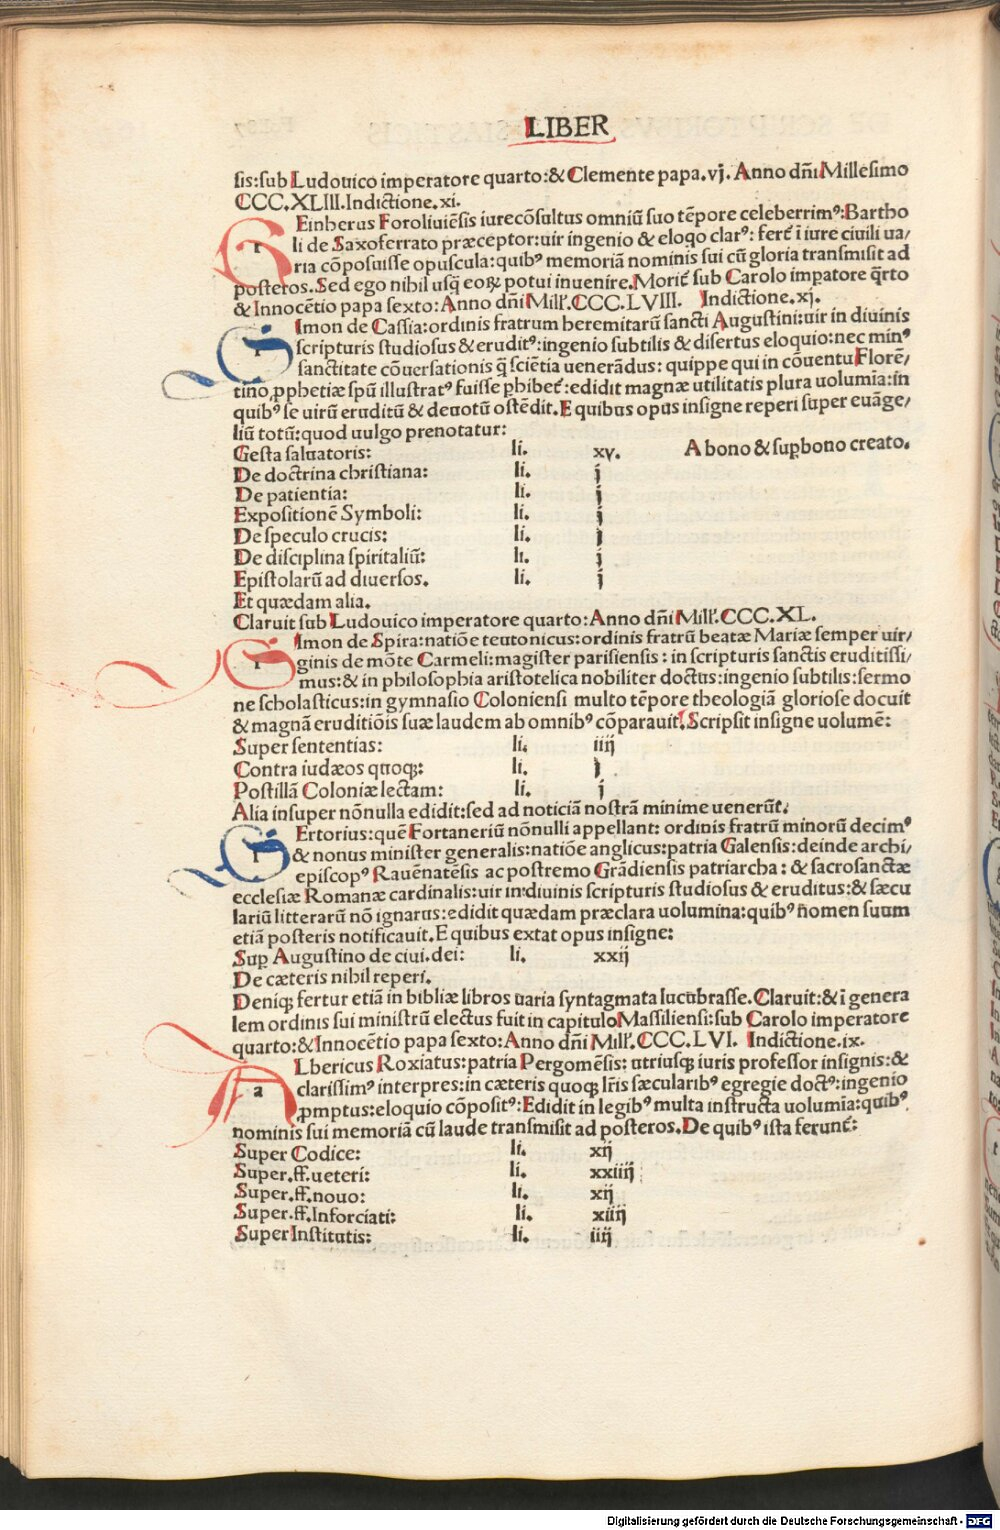 LIBER
sis:sub Ludouico imperatore quarto:& Clemente papa.vj. Anno dñi Millesimo
CCC.XLIII.Indictione.xi.
Einherus Foroliuiēsis iurecōsultus omniū suo tēpore celeberrimꝰ:Bartho
li de Saxoferrato præceptor:uir ingenio & eloqo clarꝰ: ferť ī iure ciuili ua/
ria cōposuisse opuscula:quibꝰ memoriā nominis sui cū gloria transmisit ad
posteros.Sed ego nihil usq̃ eoꝝ potui inuenire.Moriť sub Carolo impatore q̃rto
& Innocētio papa sexto:Anno dñi Mill'.CCC.LVIII. Indictione.xj.
Imon de Cassia:ordinis fratrum heremitarū sancti Augustini:uir in diuinis
scripturis studiosus & eruditꝰ:ingenio subtilis & disertus eloquio:nec minꝰ
sanctitate cōuersationis q̃ sciētia uenerādus: quippe qui in cōuentu Florē/
tino ꝓphetiæ spū illustratꝰ fuisse ꝑhibeť:edidit magnæ utilitatis plura uolumīa:in
quibꝰ se uirū eruditū & deuotū ostēdit.E quibus opus insigne reperi super euāge/
liū totū:quod uulgo prenotatur:
Gesta saluatoris: li. xv. A bono & suꝑbono creato.
De doctrina christiana: li. j
De patientia: li. j
Expositionē Symboli: li. j
De speculo crucis: li. j
De disciplina spiritaliū: li. j
Epistolarū ad diuersos. li. j
Et quædam alia.
Claruit sub Ludouico imperatore quarto:Anno dñi Mill'.CCC.XL.
Imon de Spira:natiōe teutonicus:ordinis fratrū beatæ Mariæ semper uir/
ginis de mōte Carmeli:magister parisiensis: in scripturis sanctis eruditissi/
mus:& in philosophia aristotelica nobiliter doctus:ingenio subtilis:sermo
ne scholasticus:in gymnasio Coloniensi multo tēpore theologiā gloriose docuit
& magnā eruditiōis suæ laudem ab omnibꝰ cōparauit.Scripsit insigne uolumē:
Super sententias: li. iiij
Contra iudæos quoqꝫ: li. j
Postillā Coloniæ lectam: li. j
Alia insuper nōnulla edidit:sed ad noticiā nostrā minime uenerūt.
Ertorius:quē Fortaneriū nōnulli appellant: ordinis fratrū minorū decimꝰ
& nonus minister generalis:natiōe anglicus:patria Galensis:deinde archi/
episcopꝰ Rauēnatēsis ac postremo Grādiensis patriarcha: & sacrosanctæ
ecclesiæ Romanæ cardinalis:uir in diuinis scripturis studiosus & eruditus:& sæcu
lariū litterarū nō ignarus:edidit quædam præclara uolumina:quibꝰ ñomen suum
etiā posteris notificauit.E quibus extat opus insigne:
Suꝑ Augustino de ciui.dei: li. xxij
De cæteris nihil reperi.
Deniqꝫ fertur etiā in bibliæ libros uaria syntagmata lucubrasse.Claruit:& ī genera
lem ordinis sui ministrū electus fuit in capitulo Massiliensi:sub Carolo imperatore
quarto:& Innocētio papa sexto:Anno dñi Mill'.CCC.LVI. Indictione.ix.
a
Lbericus Roxiatus:patria Pergomēsis: utriusqꝫ iuris professor insignis:&
clarissimꝰ interpres:in cæteris quoqꝫ lr̃is sæcularibꝰ egregie doctꝰ:ingenio
ꝓmptus:eloquio cōpositꝰ:Edidit in legibꝰ multa instructa uolumīa:quibꝰ
nominis sui memoriā cū laude transmisit ad posteros.De quibꝰ ista ferunť:
Super Codice: li. xij
Super.ff.ueteri: li. xxiiij
Super.ff.nouo: li. xij
Super.ff.Inforciati: li. xiiij
Super Institutis: li. iiij
Digitalisierung gefördert durch die Deutsche Forschungsgemeinschaft - DFG